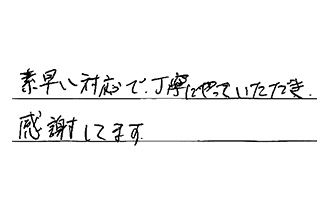 素早い対応で、丁寧にやっていただき、
感謝してます。